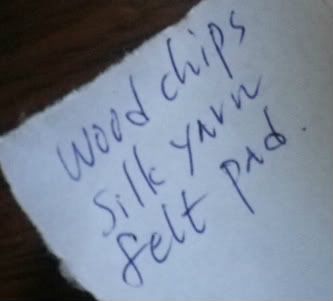 wood chips
silk yarn
felt pad.